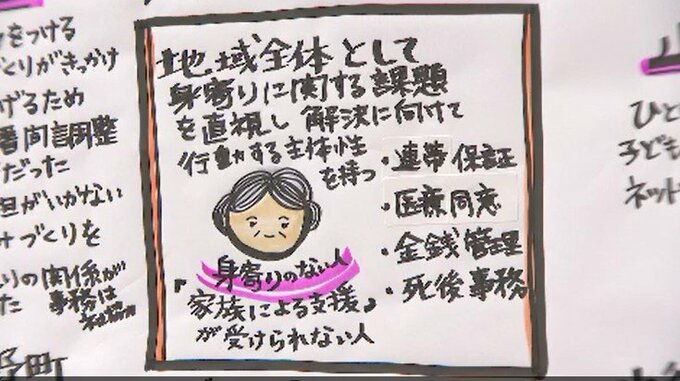 をつける
づくりがきっかけ
げるため
番向調整
だった
担がいかない
づくりを
りの関係が
事務は
野町
地域全体として
身寄りに関する課題
を直視し 解決に向けて
行動する主体性
を持つ
・連帯保証
・医療同意
・金銭管理
・死後事務
身寄りのない人
『家族による支援』
が受けられない人
ひと
子ども
ネット